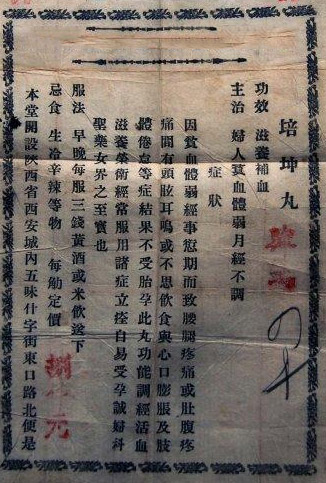 培坤丸
功效　滋養補血
主治　婦人貧血體弱月經不調
症狀
因貧血體弱經事愆期而致腰腿疼痛或肚腹疼
痛間有頭眩耳鳴或不思飲食與心口膨脹及肢
體倦怠等症結果不受胎孕此丸功能調經活血
滋養榮衛經常服用諸症立痊自易受孕誠婦科
聖藥女界之至寶也
服法　早晚每服三錢黃酒或米飲送下
忌食　生冷辛辣等物　每觔定價　捌　元
本堂開設陝西省西安城內五味什字街東口路北便是